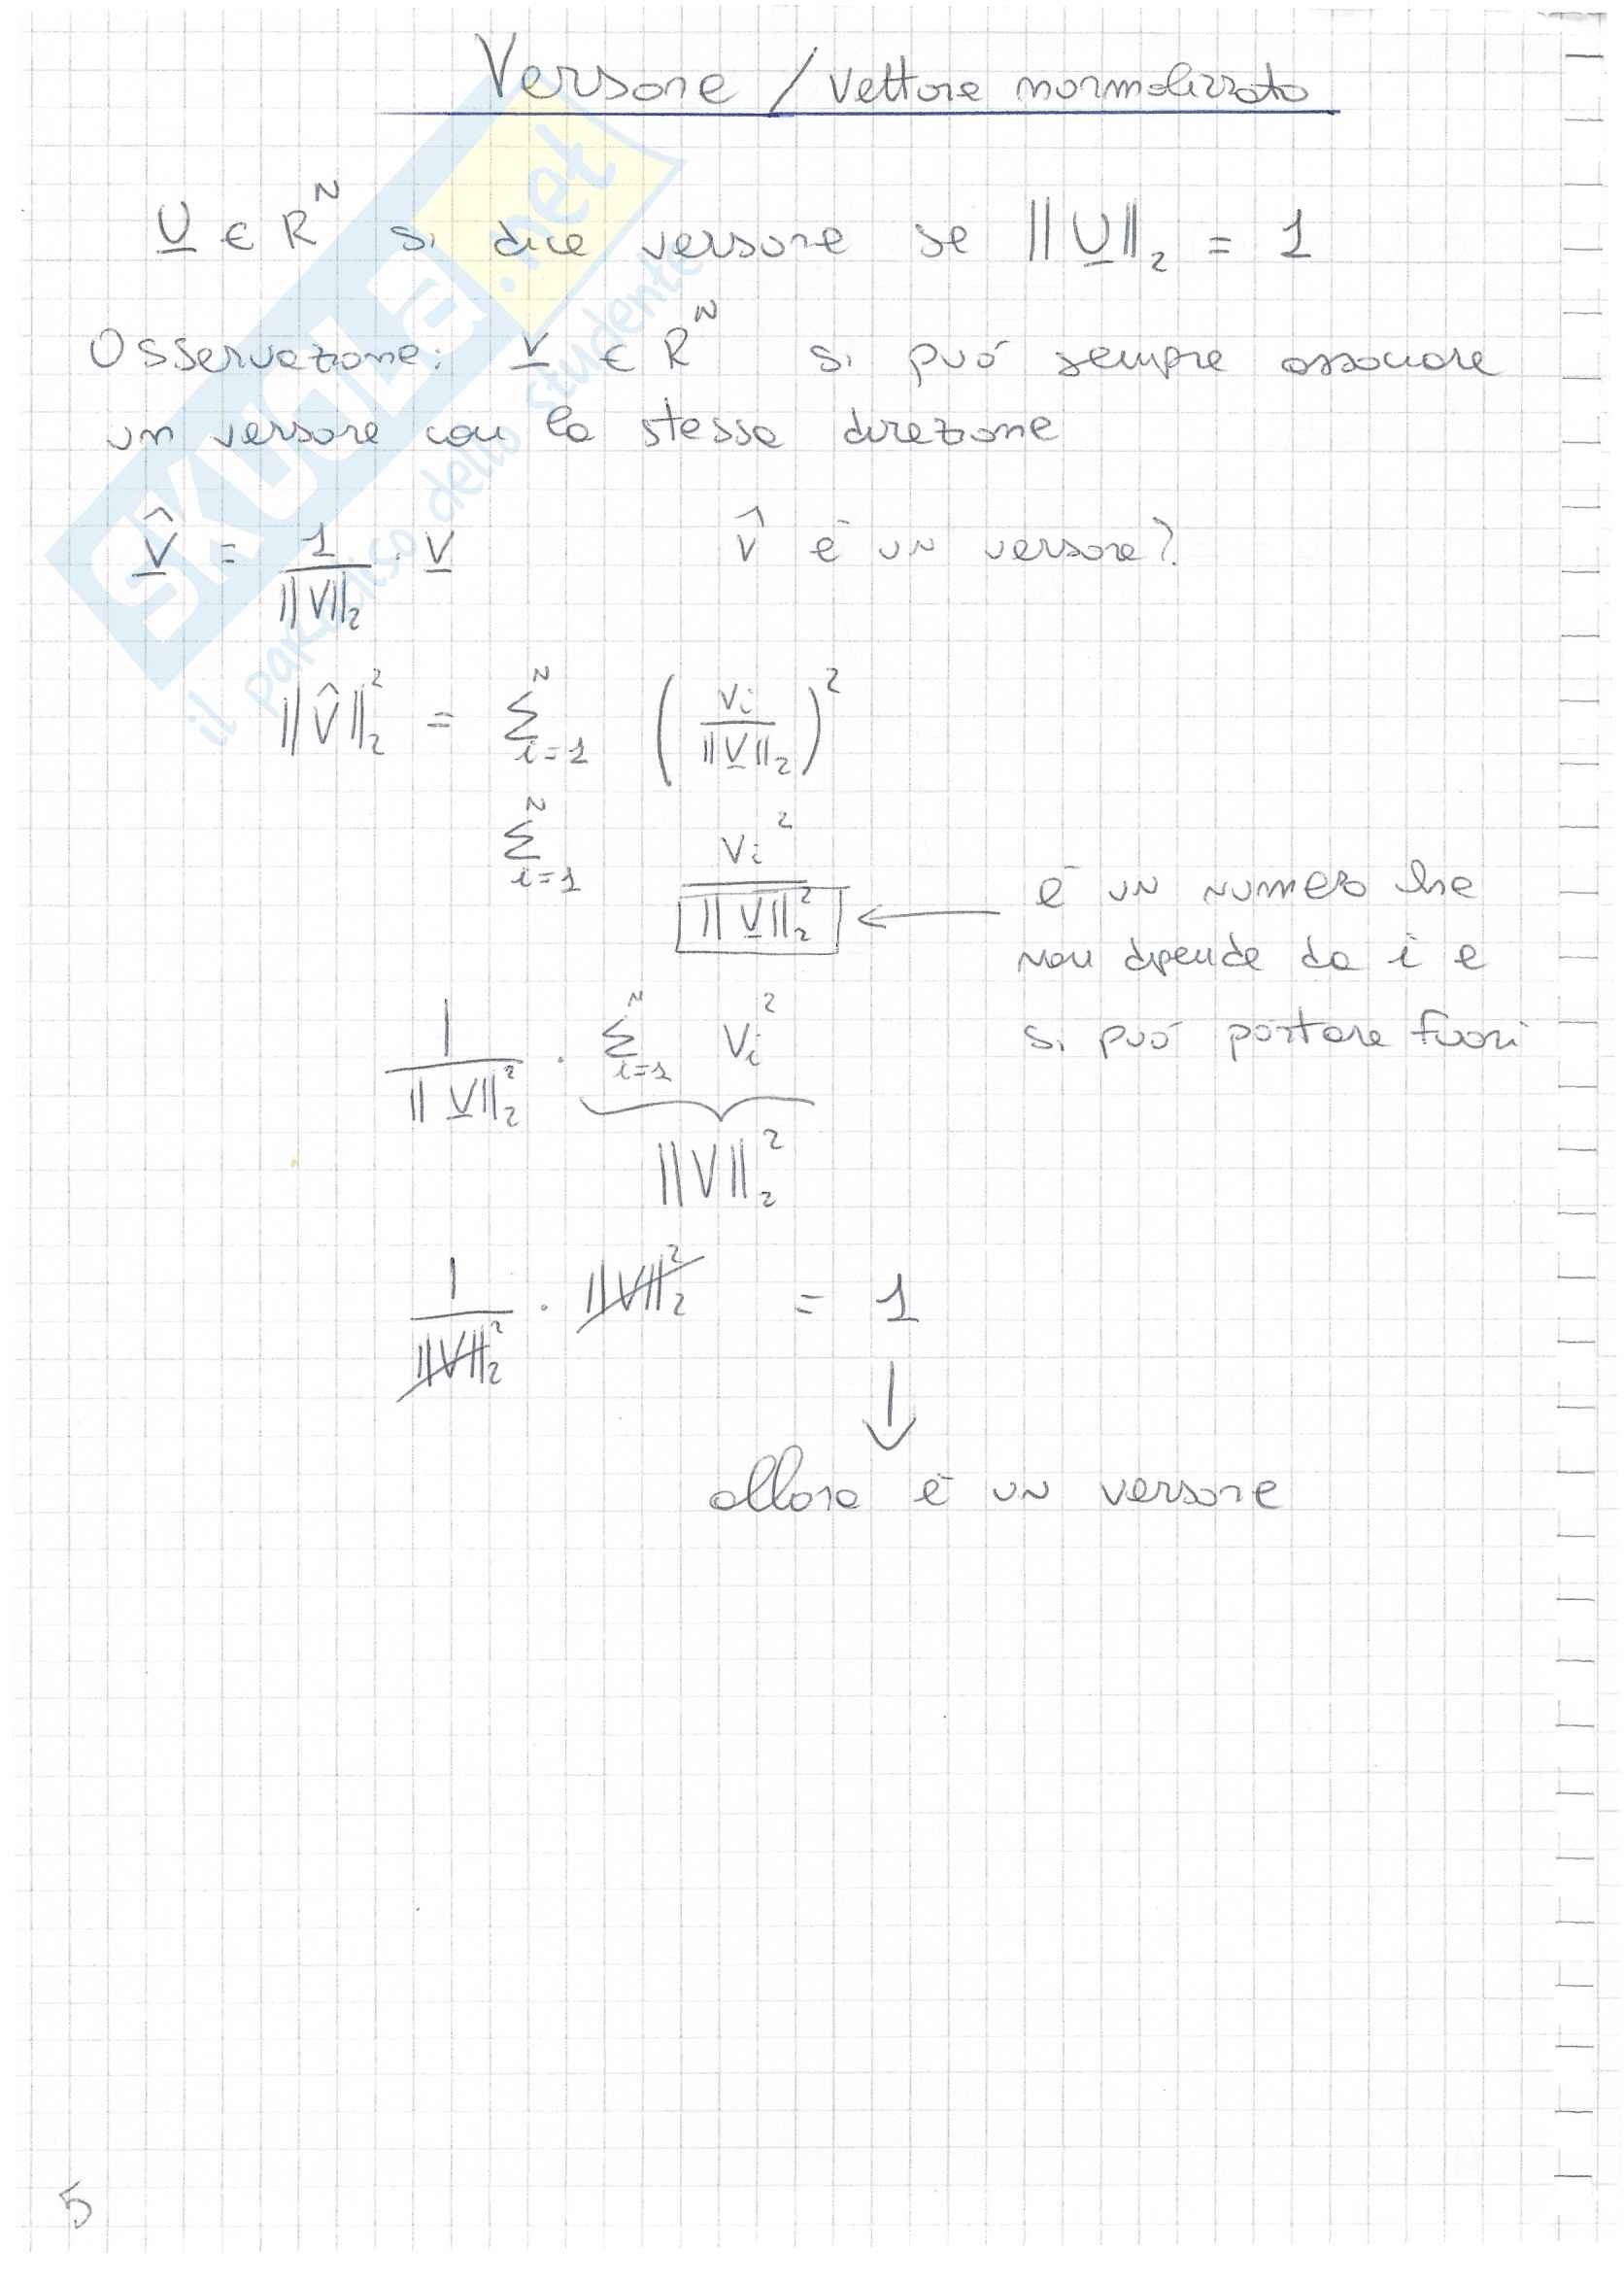 Versore / Vettore normalizzato
U ∈ R^N si dice versore se ||U||₂ = 1
Osservazione: V ∈ R^N si può sempre associare
un versore con la stessa direzione
V̂ = 1/||V||₂ · V    V̂ è un versore?
||V̂||₂² = Σ_{i=1}^N (Vi/||V||₂)²
Σ_{i=1}^N Vi²/||V||₂² ← è un numero che
non dipende da i e
1/||V||₂² · Σ_{i=1}^N Vi²    si può portare fuori
||V||₂²
1/||V||₂² · ||V||₂² = 1
↓
allora è un versore
5
SKUOLA.net
il paradiso dello studente